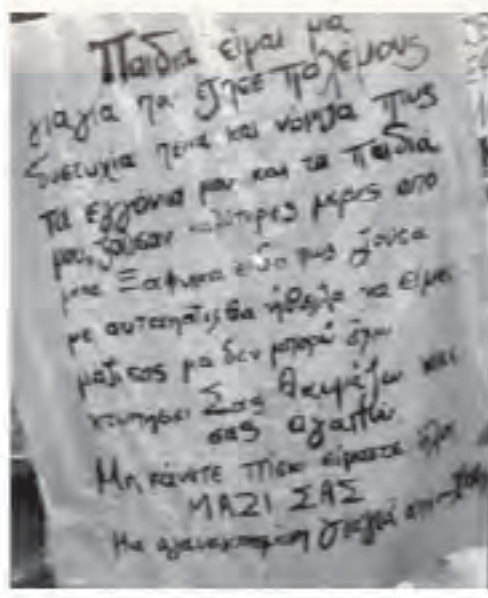 Παιδιά είμαι μια
γιαγιά που έζησε πολέμους
δυστυχία πείνα και νόμιζα πως
τα εγγόνια μου και τα παιδιά
μου, ζούσαν καλύτερες μέρες από
μένα Ξαφνικα είδα πως ζούσα
με αυταπατες θα ήθελα να είμαι
μαζι σας μα δεν μπορώ έχω
Σας θαυμάζω και
σας αγαπώ
Μη κάνετε πίσω είμαστε όλοι
ΜΑΖΙ ΣΑΣ
Μια αγανακτισμένη γιαγιά